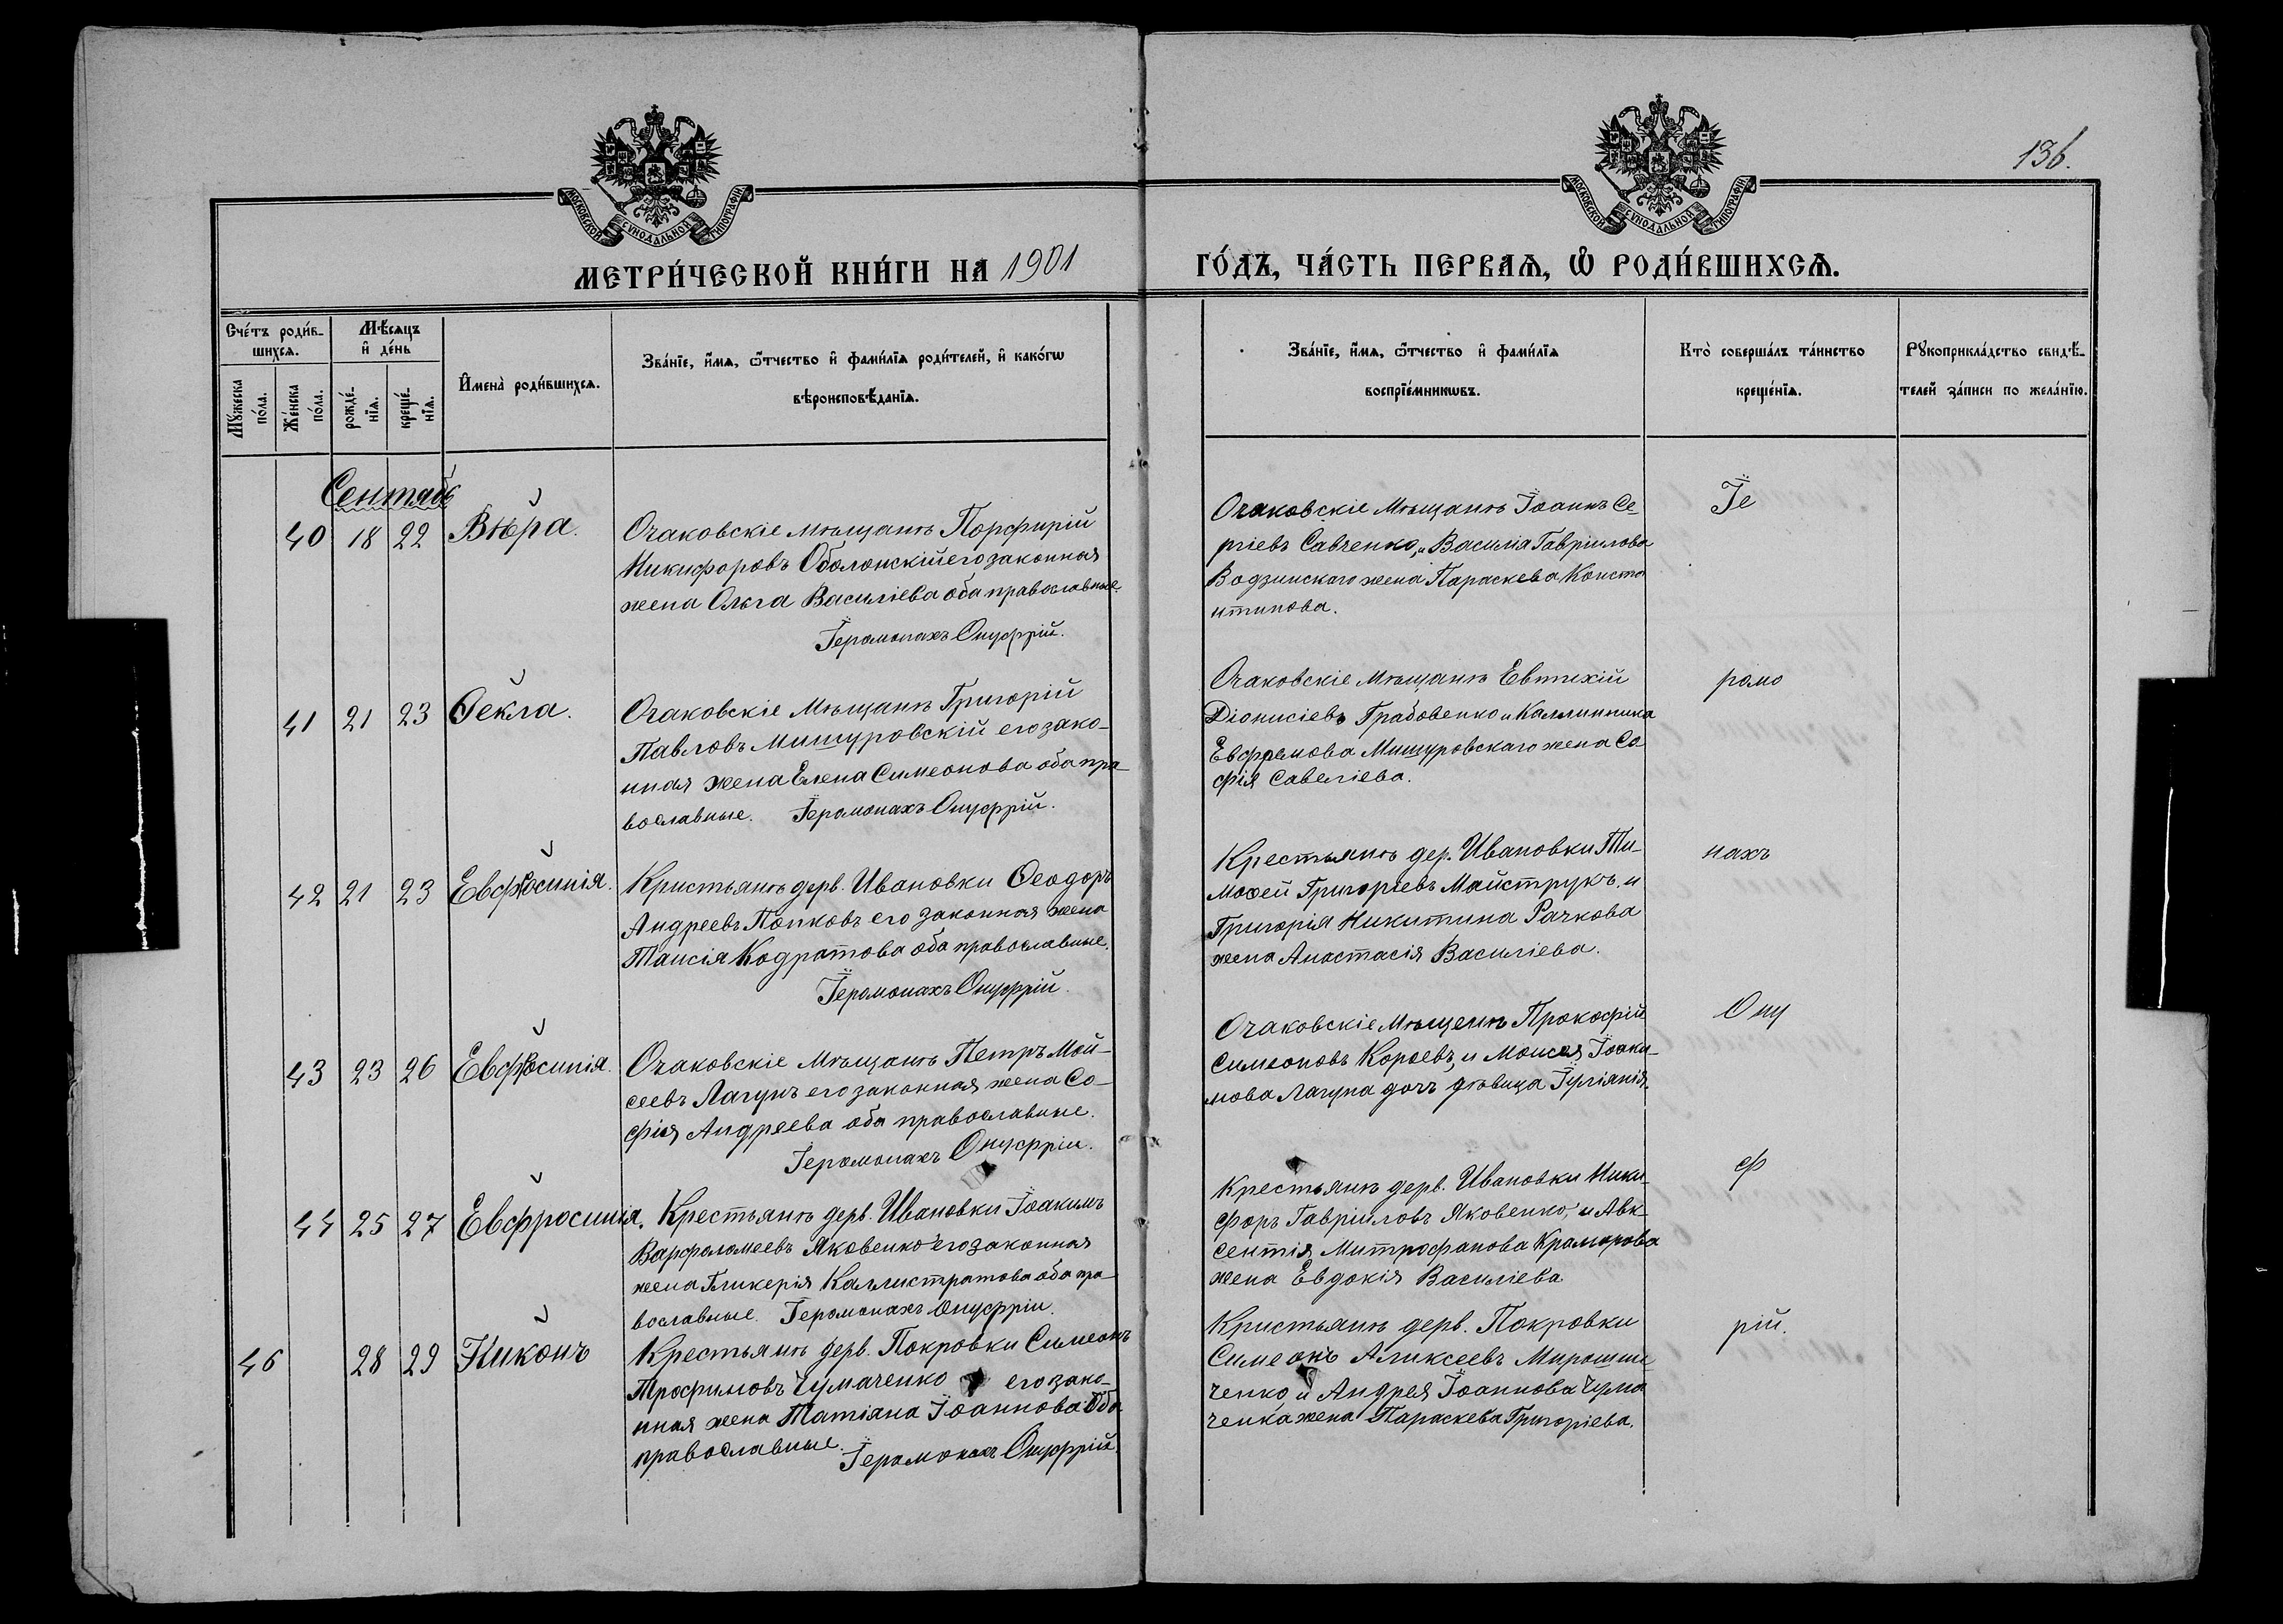 136.
МОСКОВСКОЙ СУНОДАЛЬНОЙ ТИПОГРАФІИ
МОСКОВСКОЙ СУНОДАЛЬНОЙ ТИПОГРАФІИ
МЕТРИ́ЧЕСКОЙ КНИ́ГИ НА 1901
ГО́ДЪ, ЧА́СТЬ ПЕРВАѦ, Ѡ҆ РОДИ́ВШИХСѦ.
Счéтъ роди́в-
шихсѧ.
Мꙋ́жеска
по́ла.
Же́нска
по́ла.
Мѣ́сѧцъ
и҆ де́нь
рожде́-
нїѧ.
креще́-
нїѧ.
И҆мена̀ роди́вшихсѧ.
Зва́нїе, и҆́мѧ, ѻ҆́тчество и҆ фами́лїѧ роди́телей, и҆ како́гѡ
вѣроисповѣ́данїѧ.
Зва́нїе, и҆́мѧ, ѻ҆́тчество и҆ фами́лїѧ
воспрїе́мникѡвъ.
Кто̀ соверша́лъ та́инство
креще́нїѧ.
Рꙋкоприкла́дство свидѣ́-
телей за́писи по жела́нїю.
Сентябь
40 18 22 Вѣра.
Очаковскіе мѣщанъ Порфирій
Никифоровъ Оболонскій его законная
жена Ольга Василіева оба православные.
Іеромонахъ Онуфрій.
Очаковскіе Мѣщанъ Іоаннъ Се-
ргіевъ Савченко, и Василія Гавріилова
Водзинскаго жена Параскева Конста
нтинова.
Іе
41 21 23 Ѳекла.
Очаковскіе Мѣщанъ Григорій
Павловъ Мишуровскій его зако-
нная жена Елена Симеонова оба пра-
вославные. Іеромонахъ Онуфрій.
Очаковскіе Мѣщанъ Евтихій
Діонисіевъ Грабовенко и Каллиника
Евфремова Мишуровскаго жена Со-
фія Савеліева.
ромо
42 21 23 Евфросинія.
Кристьянъ дерв. Ивановки Ѳеодоръ
Андреевъ Попковъ его законная жена
Таисія Кодратова оба православные.
Іеромонахъ Онуфрій.
Крестьянъ дер. Ивановки Ти-
моѳей Григоріевъ Майструкъ, и
Григорія Никитина Рачкова
жена Анастасія Василіева.
нахъ
43 23 26 Евфросинія.
Очаковскіе Мѣщанъ Петръ Мой-
сеевъ Лагунъ его законная жена Со-
фія Андреева оба православные.
Іеромонахъ Онуфрій.
Очаковскіе Мѣщенъ Прокофій
Симеоновъ Кораевъ, и Моисея Іоаки-
мова Лагуна дочь дѣвица Іуліанія.
Ону
44 25 27 Евфросинія.
Крестьянъ дерв. Ивановки Іоакимъ
Варфоломеевъ Яковенко его законная
жена Гликерія Каллистратова оба пра-
вославные. Іеромонахъ Онуфрій.
Крестьянъ дерв. Ивановки Ники-
форъ Гавріиловъ Яковенко, и Авк-
сентія Митрофанова Крамарова
жена Евдокія Василіева
ф
46 28 29 Никонъ
Крестьянъ дерв. Покровки Симеонъ
Трофимовъ Чумаченко его зако-
нная жена Татіана Іоаннова Оба
православные. Іеромонахъ Онуфрій.
Кристьянъ дерв. Покровки
Симеонъ Аликсеевъ Мирошни-
ченко, и Андрея Іоаннова Чума
ченка жена Параскева Григоріева.
рій.